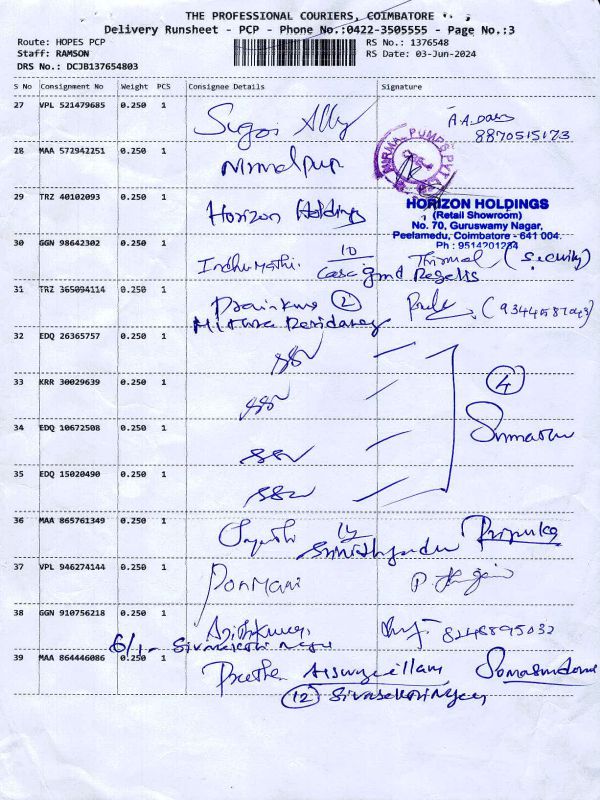 THE PROFESSIONAL COURIERS, COIMBATORE
Delivery Runsheet - PCP - Phone No.:0422-3505555 - Page No.:3
Route: HOPES PCP
Staff: RAMSON
DRS No.: DCJB137654803
RS No.: 1376548
RS Date: 03-Jun-2024
S No Consignment No Weight PCS Consignee Details Signature
27 VPL 521479685 0.250 1
8870515173
28 MAA 572942251 0.250 1
NIRMAL PUMPS PVT
29 TRZ 40102093 0.250 1 Horizon Holdings
HORIZON HOLDINGS
(Retail Showroom)
No. 70, Guruswamy Nagar,
Peelamedu, Coimbatore - 641 004.
Ph : 9514201234
30 GGN 98642302 0.250 1 Indhumathi. 10 Thirmal (Security)
Casa grand Regalis
31 TRZ 365094114 0.250 1 2
32 EDQ 26365757 0.250 1 SSV
33 KRR 30029639 0.250 1 SSV 4
34 EDQ 10672508 0.250 1 SSV
35 EDQ 15020490 0.250 1 SSV
36 MAA 865761349 0.250 1
37 VPL 946274144 0.250 1 PonMani
38 GGN 910756218 0.250 1 Ajithkumar 8248895032
39 MAA 864446086 0.250 1 Preetha
12